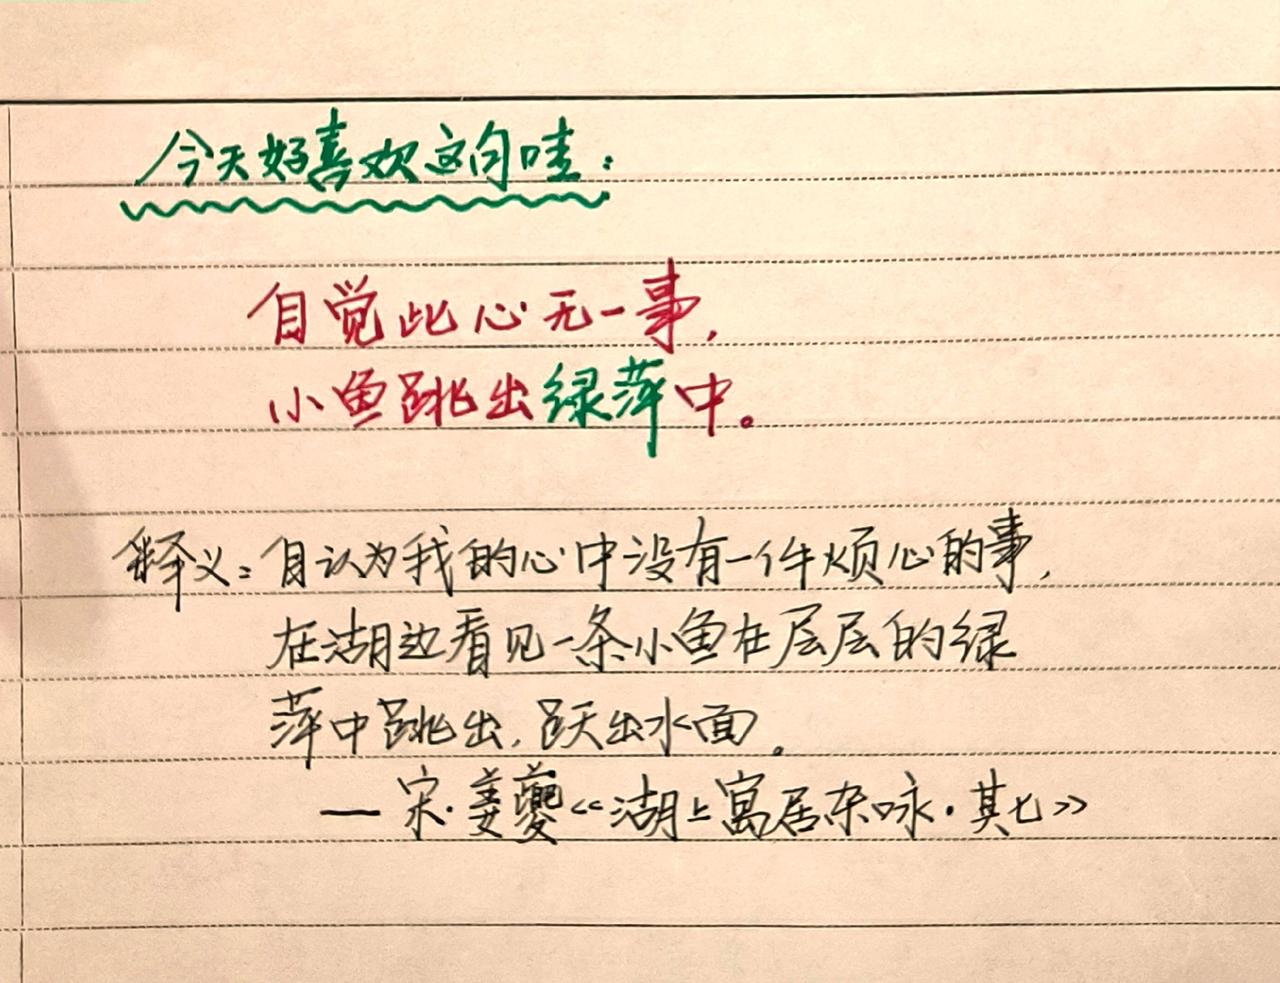 今天好喜欢这句哇：
自觉此心无一事，
小鱼跳出绿萍中。
释义：自认为我的心中没有一件烦心的事，
在湖边看见一条小鱼在层层的绿
萍中跳出，跃出水面。
— 宋·姜夔《湖上寓居杂咏·其七》